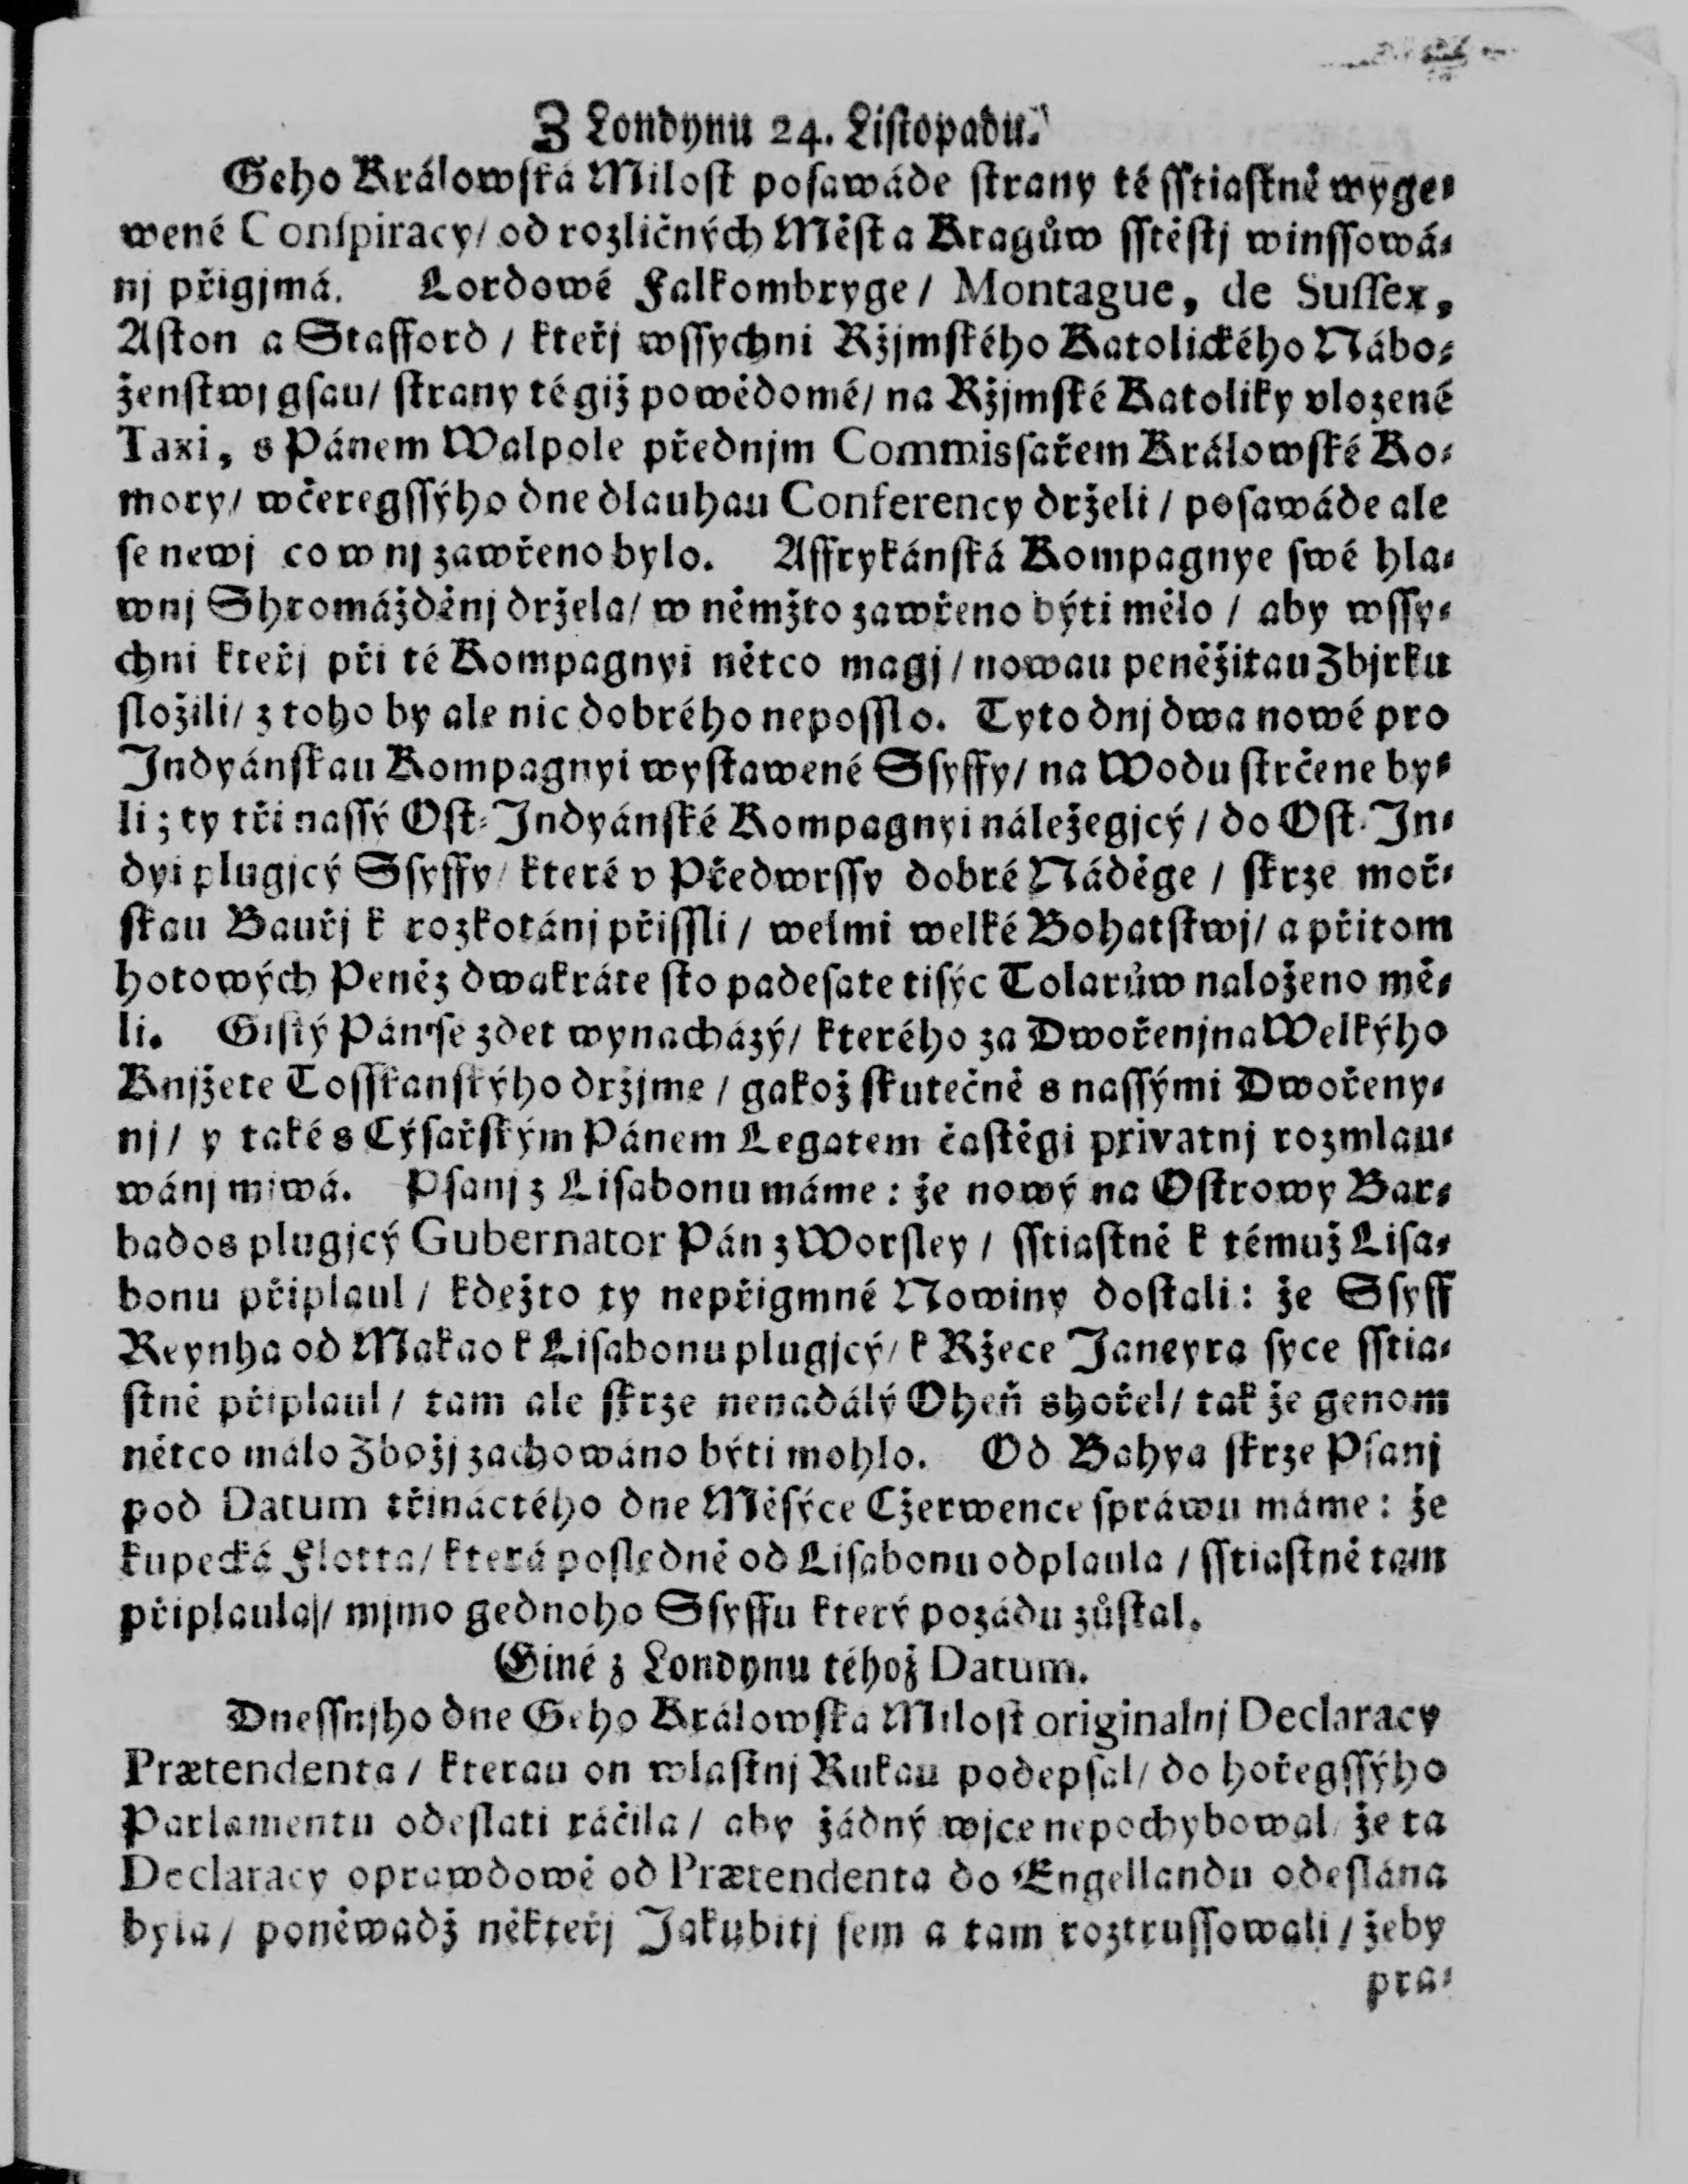 Z Londynu 24. Listopadu.
Geho Králowſká Miloſt poſawáde ſtrany té ſſtiaſtně wyge⸗
wené Conſpiracy/ od rozličných Měſt a Kragůw ſſtěſtj winſſowá⸗
nj přigjmá. Lordowé Falkombryge / Montague, de Suſſex,
Aſton a Stafford / kteřj wſſychni Ržjmſkého Katolického Nábo⸗
ženſtwj gſau/ ſtrany té giž powědomé/ na Ržjmſké Katoliky vlozené
Taxi, s Pánem Walpole přednjm Commisſařem Králowſké Ko⸗
mory/ wčeregſſýho dne dlauhau Conferency drželi / poſawáde ale
ſe newj co w nj zawřeno bylo. Affrykánſká Kompagnye ſwé hla⸗
wnj Shromážděnj držela/ w němžto zawřeno býti mělo / aby wſſy⸗
chni kteřj při té Kompagnyi nětco magj / nowau peněžitau Zbjrku
ſložili/ z toho by ale nic dobrého nepoſſlo. Tyto dnj dwa nowé pro
Indyánſkau Kompagnyi wyſtawené Sſyffy/ na Wodu ſtrčene by⸗
li; ty tři naſſý Oſt⸗Indyánſké Kompagnyi náležegjcý / do Oſt⸗In⸗
dyi plugjcý Sſyffy/ které v Předwrſſy dobré Náděge / ſkrze moř⸗
ſkau Bauřj k rozkotánj přiſſli / welmi welké Bohatſtwj/ a přitom
hotowých Peněz dwakráte ſto padeſate tiſýc Tolarůw naloženo mě⸗
li. Giſtý Pán ſe zdet wynacházý/ kterého za Dwořenjna Welkýho
Knjžete Toſſkanſkýho držjme / gakož ſkutečně s naſſými Dwořeny⸗
nj/ y také s Cýſařſkým Pánem Legatem častěgi privatnj rozmlau⸗
wánj mjwá. Pſanj z Liſabonu máme: že nowý na Oſtrowy Bar⸗
bados plugjcý Gubernator Pán z Worſley / ſſtiaſtně k témuž Liſa⸗
bonu připlaul / kdežto ty nepřigmné Nowiny doſtali: že Sſyff
Reynha od Makao k Liſabonu plugjcý/ k Ržece Janeyra ſyce ſſtia⸗
ſtně připlaul / tam ale ſkrze nenadálý Oheň shořel/ tak že genom
nětco málo Zbožj zachowáno býti mohlo. Od Bahya ſkrze Pſanj
pod Datum třináctého dne Měſýce Cžerwence ſpráwu máme: že
kupecká Flotta/ která poſledně od Liſabonu odplaula / ſſtiaſtně tam
připlaula/ mjmo gednoho Sſyffu který pozádu zůſtal.
Giné z Londynu téhož Datum.
Dneſſnjho dne Geho Králowſka Miloſt originalnj Declaracy
Prætendenta / kterau on wlaſtnj Rukau podepſal/ do hořegſſýho
Parlamentu odeſlati ráčila / aby žádný wjce nepochybowal/ že ta
Declaracy oprawdowě od Prætendenta do Engellandu odeſlána
byla/ poněwadž někteřj Jakubitj ſem a tam roztruſſowali / žeby
pra⸗